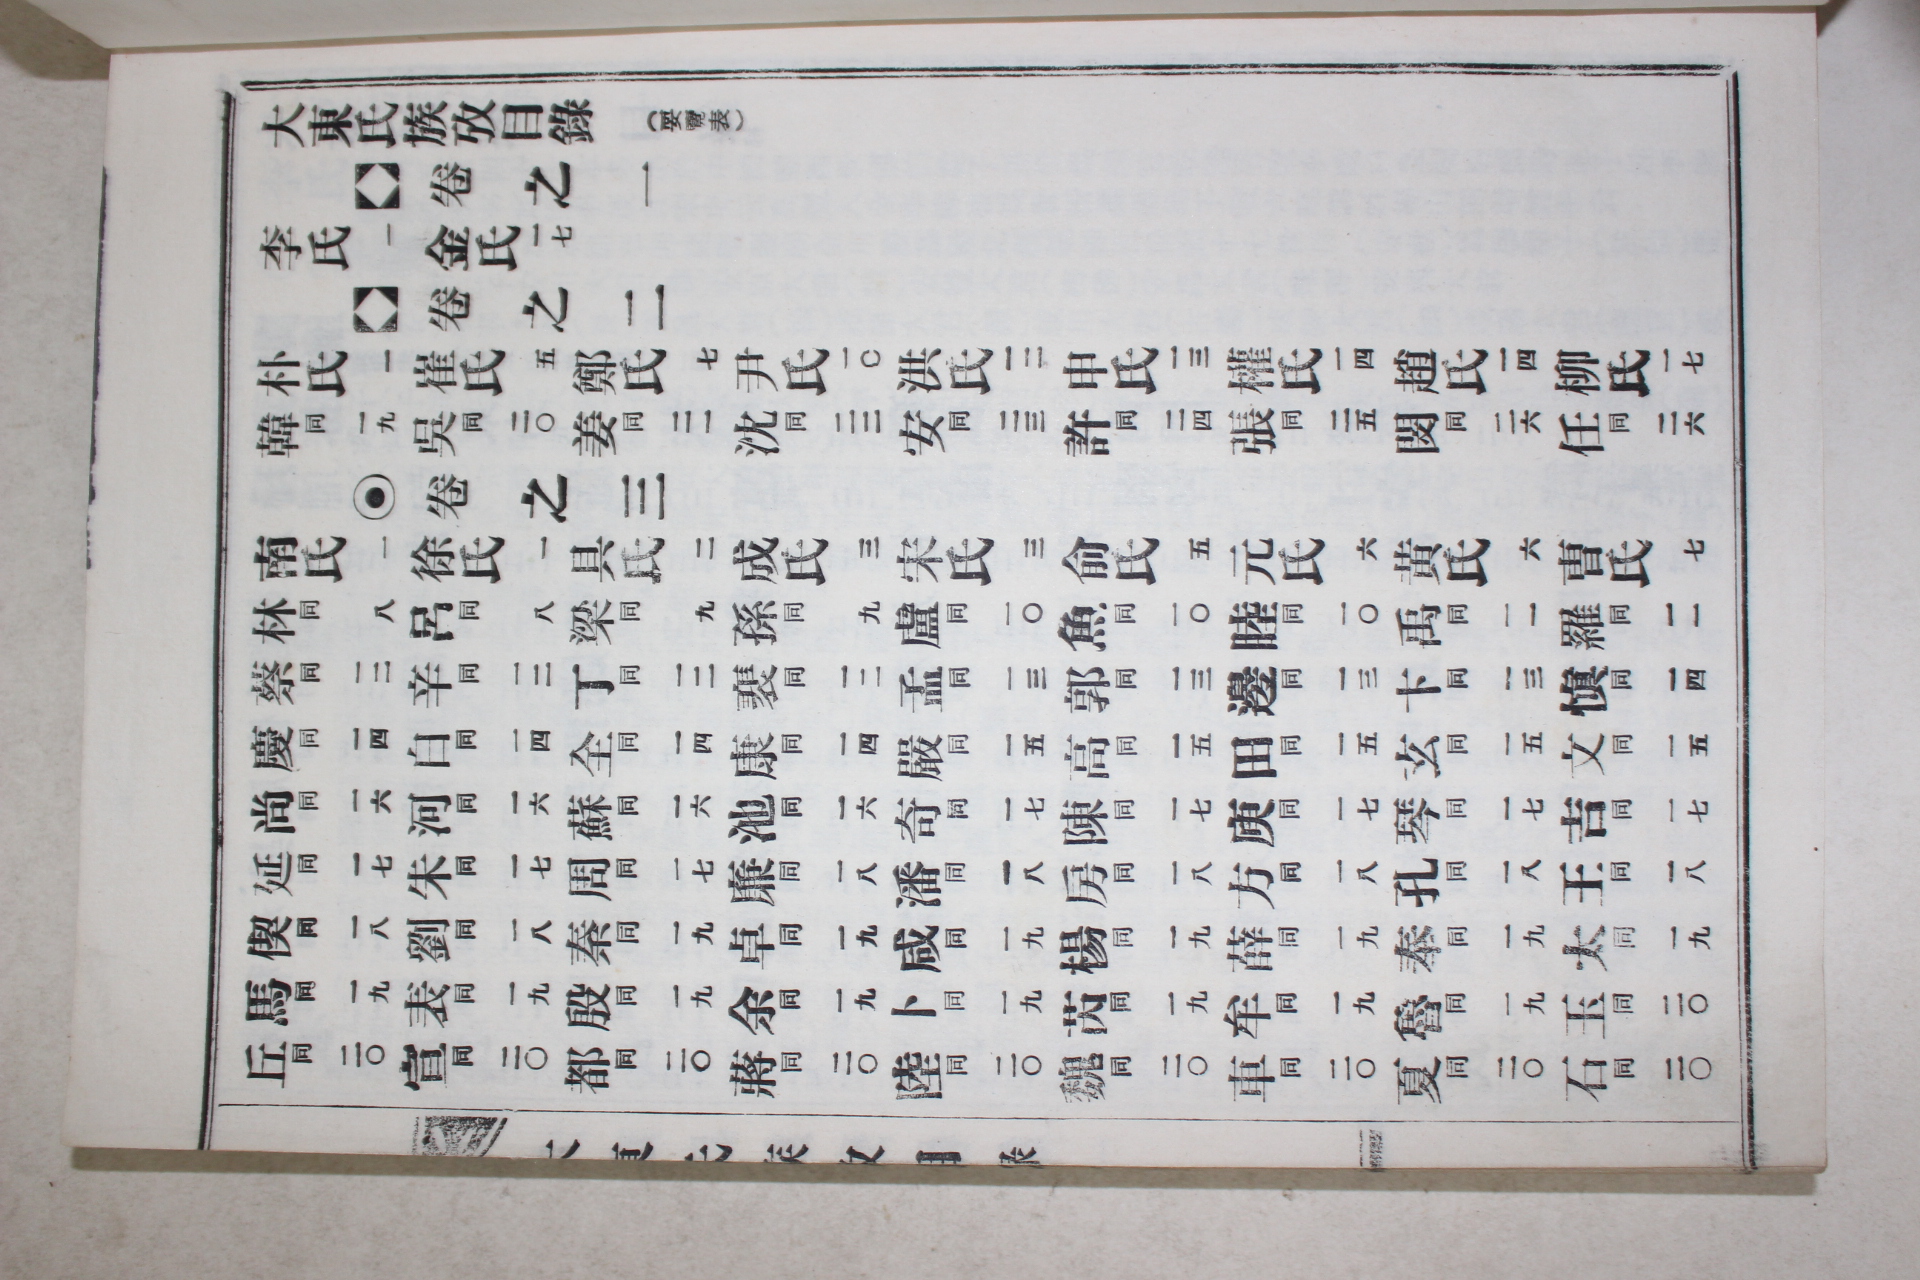 大東氏族攷目錄 (要覽表)
卷之一
李氏 一 金氏 一七
卷之二
朴氏 一 崔氏 五 鄭氏 七 尹氏 一〇 洪氏 一二 申氏 一三 權氏 一四 趙氏 一四 柳氏 一七
韓同 一九 吳同 二〇 姜同 二一 沈同 二二 安同 二三 許同 二四 張同 二五 閔同 二六 任同 二六
◉卷之三
南氏 一 徐氏 一 具氏 二 成氏 三 宋氏 三 俞氏 五 元氏 六 黃氏 六 曺氏 七
林同 八 呂同 八 梁同 九 孫同 九 盧同 一〇 魚同 一〇 睦同 一〇 禹同 一一 羅同 一一
蔡同 一二 辛同 一二 丁同 一二 裵同 一二 孟同 一三 郭同 一三 邊同 一三 卞同 一三 愼同 一四
慶同 一四 白同 一四 全同 一四 康同 一四 嚴同 一五 高同 一五 田同 一五 玄同 一五 文同 一五
尚同 一六 河同 一六 蘇同 一六 池同 一六 奇同 一七 陳同 一七 庾同 一七 琴同 一七 吉同 一七
延同 一七 朱同 一七 周同 一七 廉同 一八 潘同 一八 房同 一八 方同 一八 孔同 一八 王同 一八
偰同 一八 劉同 一八 秦同 一九 卓同 一九 咸同 一九 楊同 一九 薛同 一九 奉同 一九 太同 一九
馬同 一九 表同 一九 殷同 一九 余同 一九 卜同 一九 芮同 一九 牟同 一九 魯同 一九 玉同 二〇
丘同 二〇 宣同 二〇 都同 二〇 蔣同 二〇 陸同 二〇 魏同 二〇 車同 二〇 夏同 二〇 石同 二〇